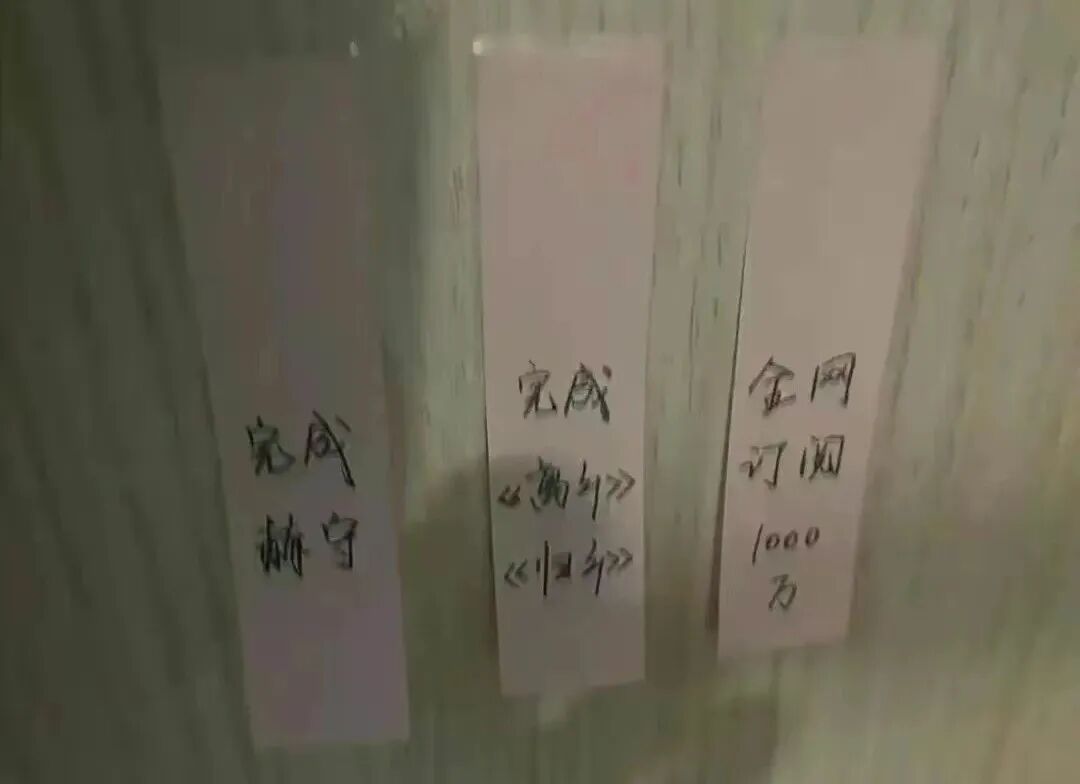 完成
守
完成
《离乡》
《归乡》
全网
订阅
1000
万